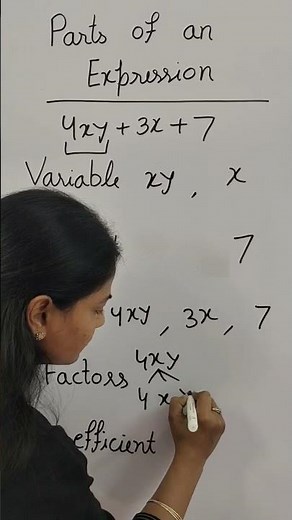 Parts of an
Expression
4xy + 3x + 7
Variable xy , x
7
4xy , 3x , 7
Factors 4xy
4 x
efficient